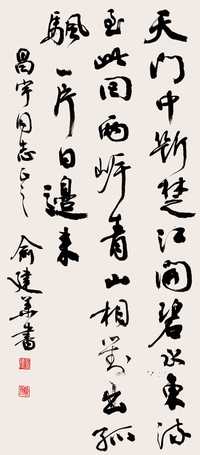 天门中断楚江开碧水东流
至此回两岸青山相对出孤
帆一片日边来
昌宇同志正之
俞建华书